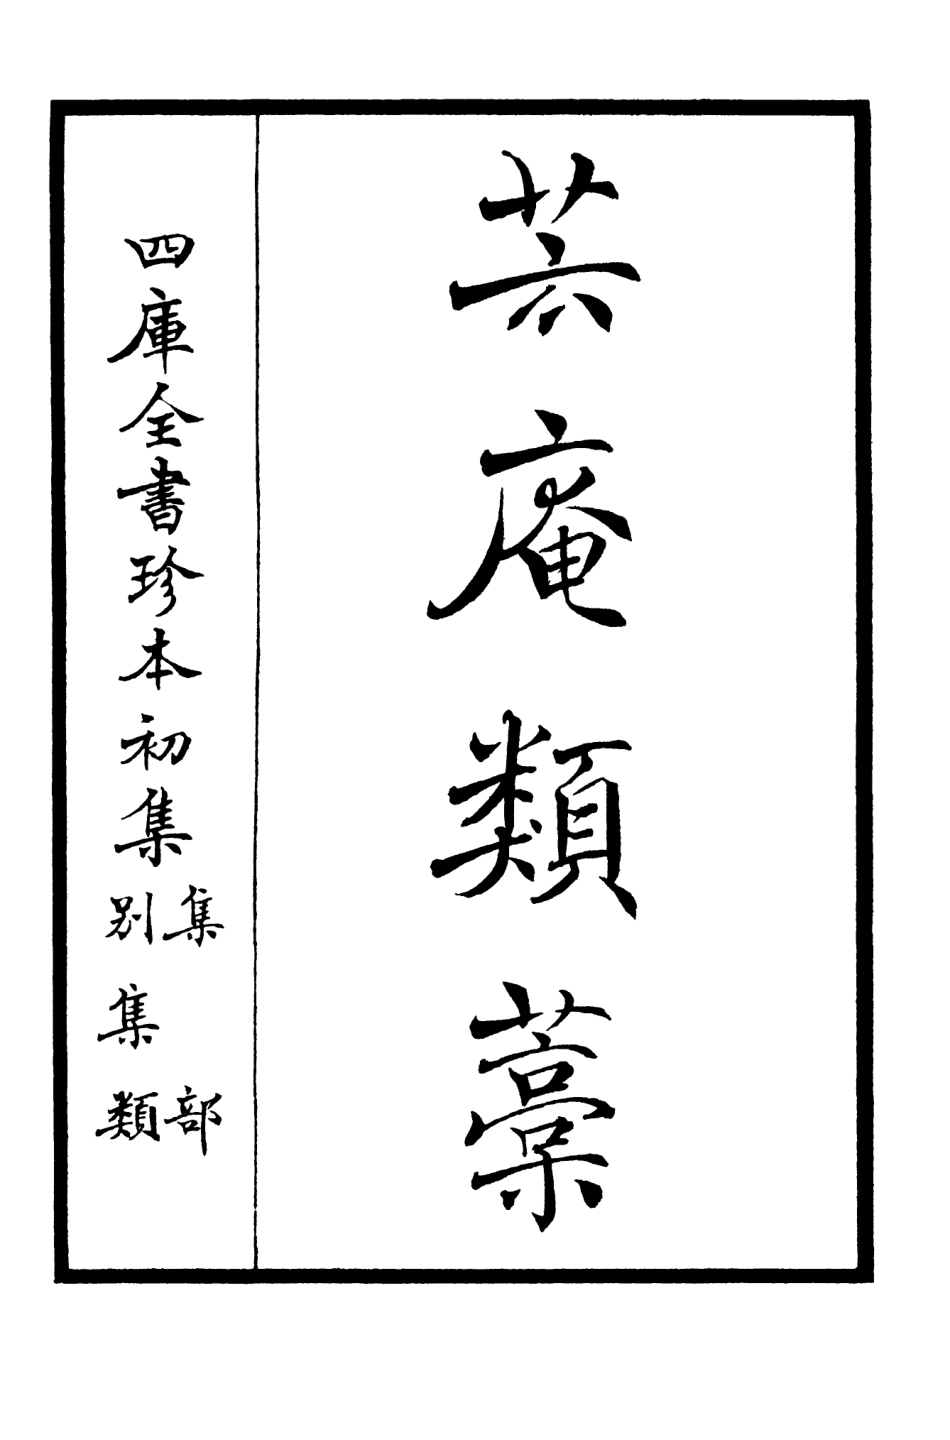 芸庵類藁
四庫全書珍本初集
集部
別集類